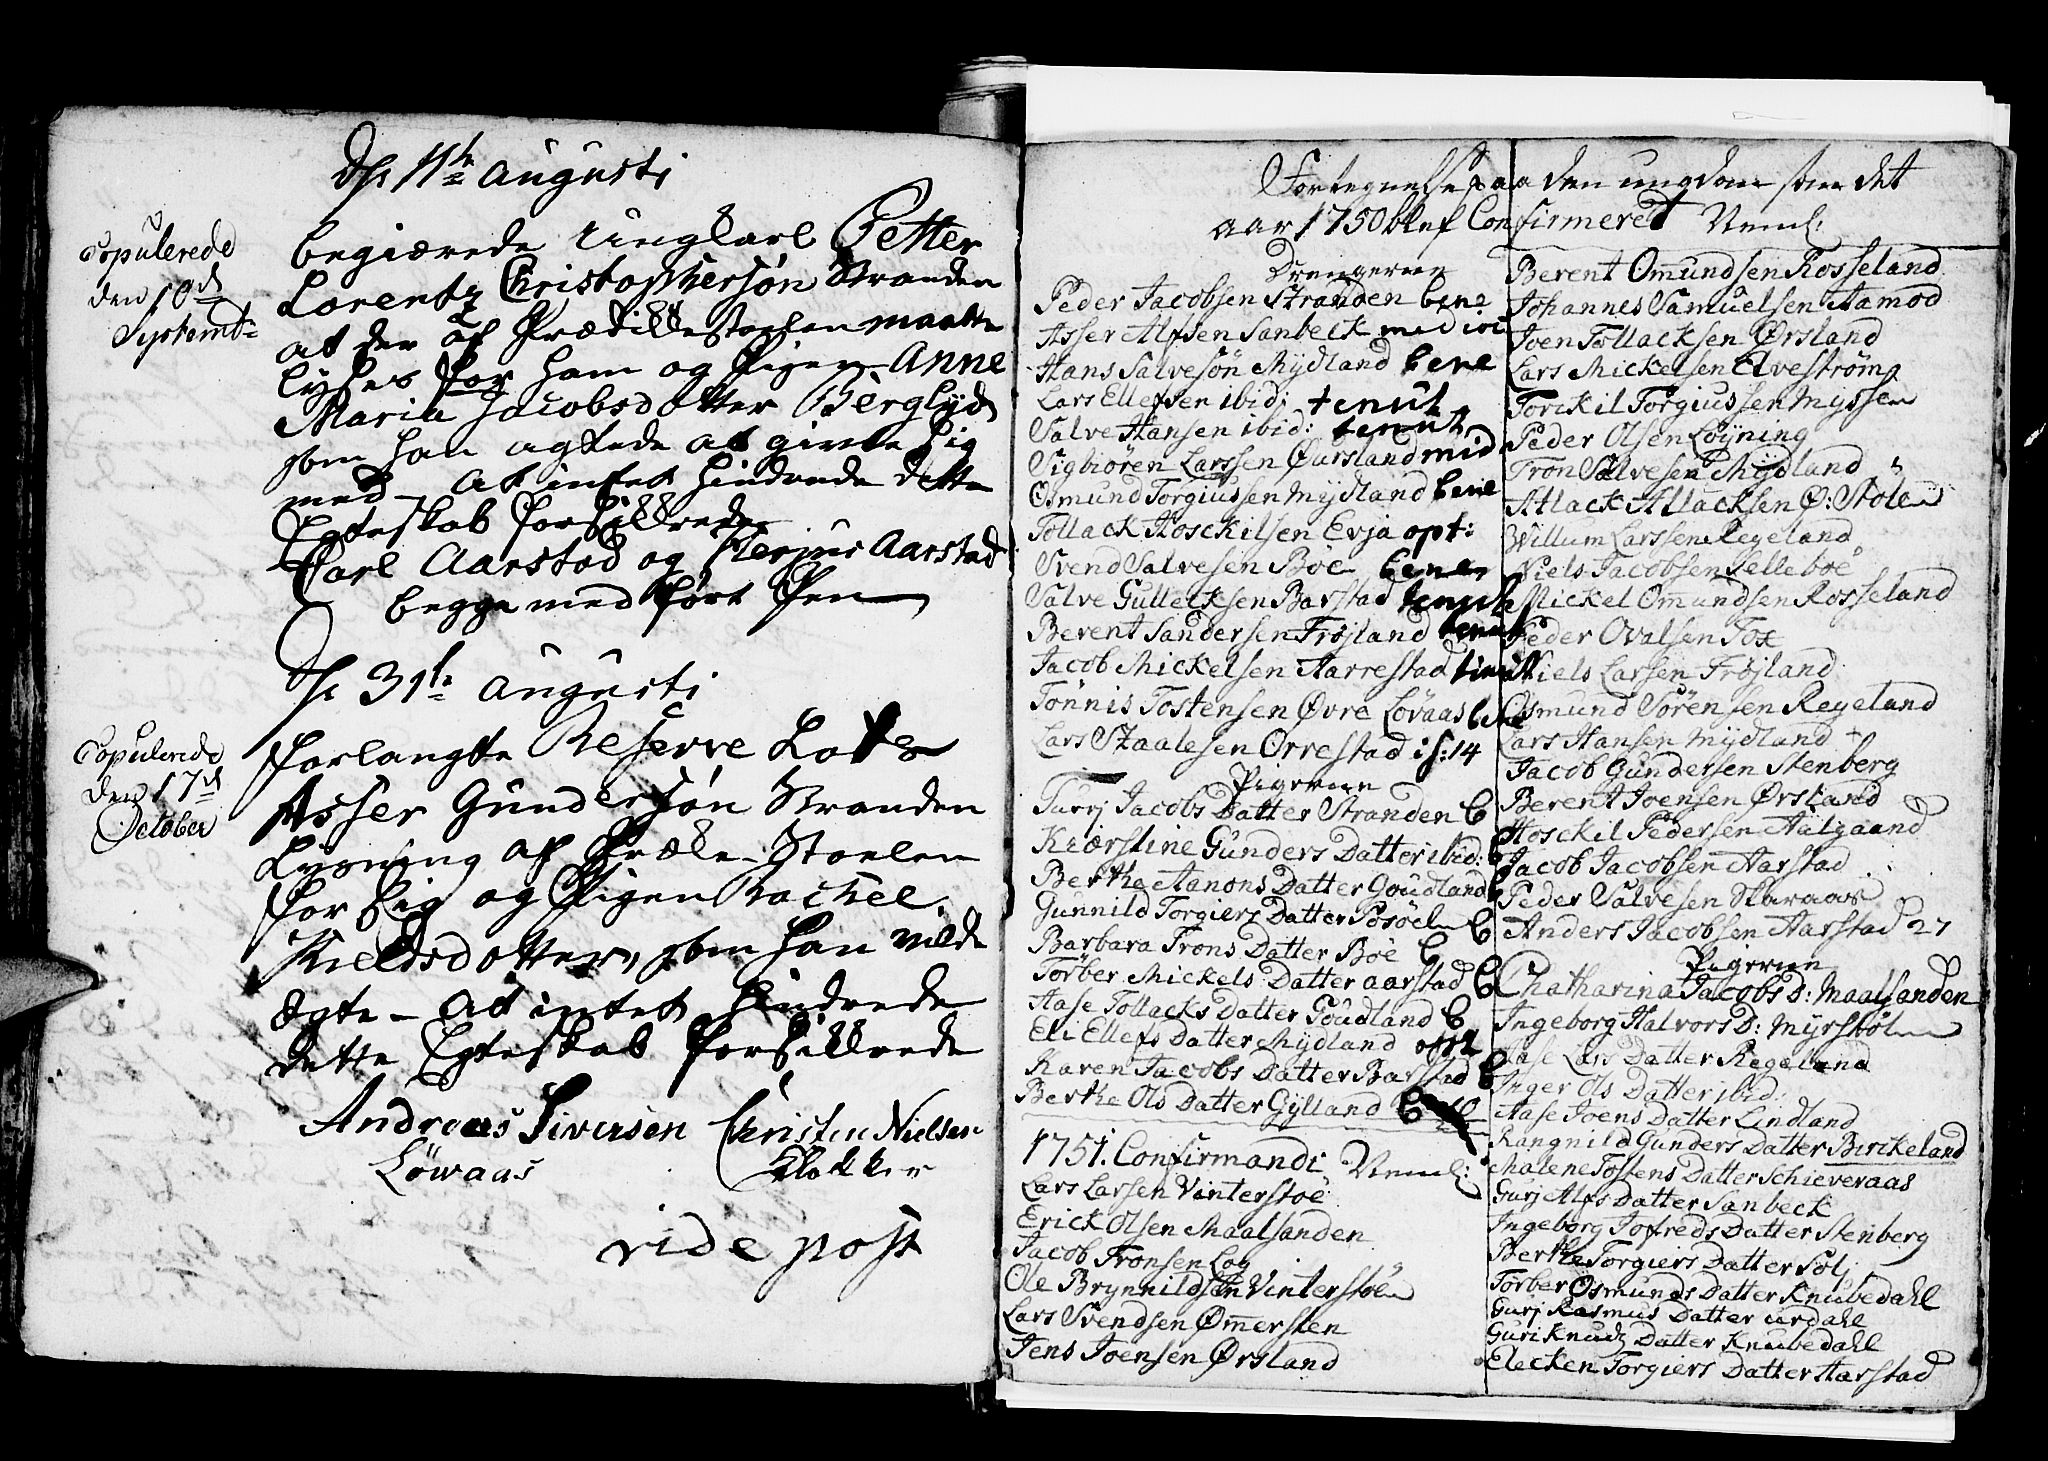 D. 11te Augusti
Copulerede
den 10de
Systembr
begiærede Ungkarl Petter
Lorentz Christophersøn Stranden
at der af Prædikkestoelen maatte
lyses for ham og Pigen Anne
Maria Jacobsdotter Berglyd
som han agtede at givte sig
med - At intet hindrede dette
Egteskab forsikkrede
Carl Aarstad og Aarstad
begge med ført Pen
D. 31te Augusti
Copulerede
den 17de
October
forlangte Reserve
Asser Gundersøn Stranden
Lysning af Præke-Stoelen
for sig og Pigen Rachel
Kieldsdotter, som han vilde
ægte - At intet hindrede
dette Egteskab forsikkrede
Andreas Siversen Christen Nielsen
Løwaas Klokker
vide post
Fortegnelse paa den ungdom som det
aar 1750 blef Confirmeret Neml:
Drengerne
Peder Jacobsen Stranden bene
Asser Alfsen Sanbeck medioc
Hans Salvesön Mydland bene
Lars Ellefsen ibid: tenuit
Salve Hansen ibid: tenuit
Sigbiören Larssen Øursland mid
Osmund Torgiussen Mydland bene
Tollack Hosckilsen Evja opt:
Svend Salvesen Böe bene
Salve Gullecksen Barstad tenuit
Berent Sandersen Fröjland tenuit
Jacob Mickelsen Aarrestad tenuit
Tönnis Tostensen Øvre Lövaas bene
Lars Staalesen Orrestad is: 14
Pigerne
Turrj Jacobs Datter Stranden B
Kiærstine Gunders Datter ibid: B
Berthe Aanons Datter Goudland B
Gunnild Torgiers Datter Posöel B
Barbara Trons Datter Böe B
Törber Mickels Datter aarstad B
Aase Tollacks Datter Goudland B
Eli Ellefs Datter Mydland opt
Karen Jacobs Datter Barstad B
Berthe Ols Datter Gylland B 10
1751. Confirmandi Neml:
Lars Larsen Vinterstöe
Erick Olsen Maalsanden
Jacob Tronsen Log
Ole Brynnildsen Vinterstöe
Lars Svendsen Ømersten
Jens Joensen Ørsland
Berent Omundsen Rosseland
Johannes Samuelsen Aamod
Joen Tollacksen Ørsland
Lars Mickelsen Elveströmg
Torckil Torgiussen Myssen
Peder Olsen Löyning
Tron Salvesen Mydland
Atlack Atlacksen Ø: Stölen
Willum Larssen Regeland
Niels Jacobsen Selleboe
Mickel Omundsen Rosseland
Peder Ovalsen Tox
Niels Larsen Fröjland
Osmund Sörensen Regeland
Lars Hansen Mydland
Jacob Gundersen Stenberg
Berent Joensen Ørsland
Hosckil Pedersen Aalgaard
Jacob Jacobsen Aarstad
Peder Salvesen Skaraas
Anders Jacobsen Aarstad 27
Pigerne
Chatharina Jacobs D: Maalsanden
Ingeborg Halvors D: Myrstöl
Aase Lars Datter Regeland
Inger Ols Datter ibid:
Aase Joens Datter Lindland
Rangnild Gunders Datter Birckeland
Malene Tostens Datter Schieveraas
Gurj Alfs Datter Sanbeck
Ingeborg Jofreds Datter Stenberg
Berthe Torgiers Datter Solj
Törber Osmunds Datter Knubedahl
Gurj Rasmus Datter urdahl
Guri Knudz Datter Knubedahl
Elecken Torgiers Datter Aarstad